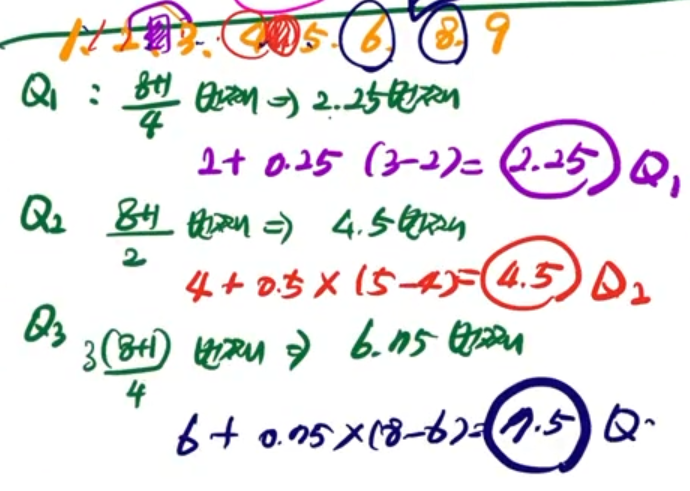 1. 2 3. 4 5. 6. 8. 9
Q1 : 8+1/4 번째 ⇒ 2.25번째
2 + 0.25 (3-2) = 2.25 Q1
Q2 8+1/2 번째 ⇒ 4.5번째
4 + 0.5 × (5-4) = 4.5 Q2
Q3 3(8+1)/4 번째 ⇒ 6.75 번째
6 + 0.75 × (8-6) = 7.5 Q